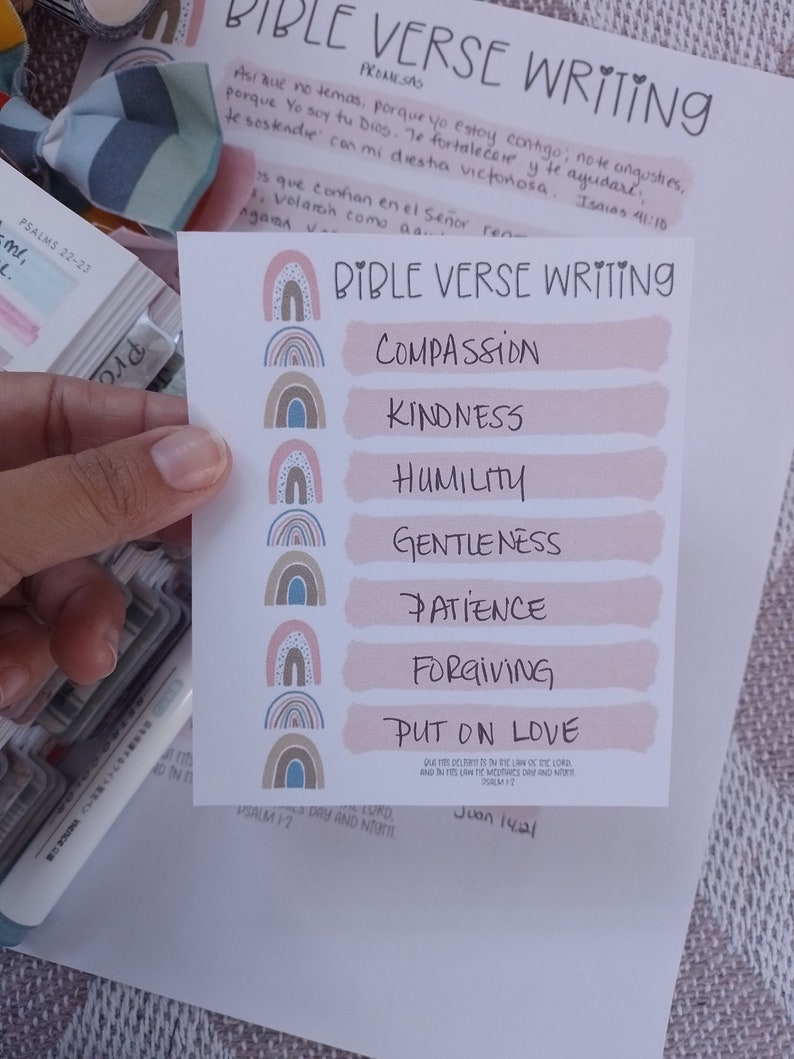 BIBLE VERSE WRITING
PROMESAS
Así que no temas, porque yo estoy contigo; no te angusties,
porque Yo soy tu Dios. Te fortaleceré y te ayudaré;
te sostendré con mi diestra victoriosa. Isaías 41:10
que confían en el Señor
volarán como
PSALMS 22-23
BIBLE VERSE WRITING
COMPASSION
KINDNESS
HUMILITY
GENTLENESS
PATIENCE
FORGIVING
PUT ON LOVE
BUT HIS DELIGHT IS IN THE LAW OF THE LORD,
AND IN HIS LAW HE MEDITATES DAY AND NIGHT.
PSALM 1:2
THE LORD,
DAY AND NIGHT.
PSALM 1:2
Juan 14:21